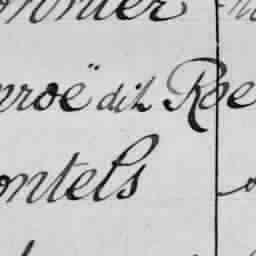 onnier
nroë dit Roe
ontels